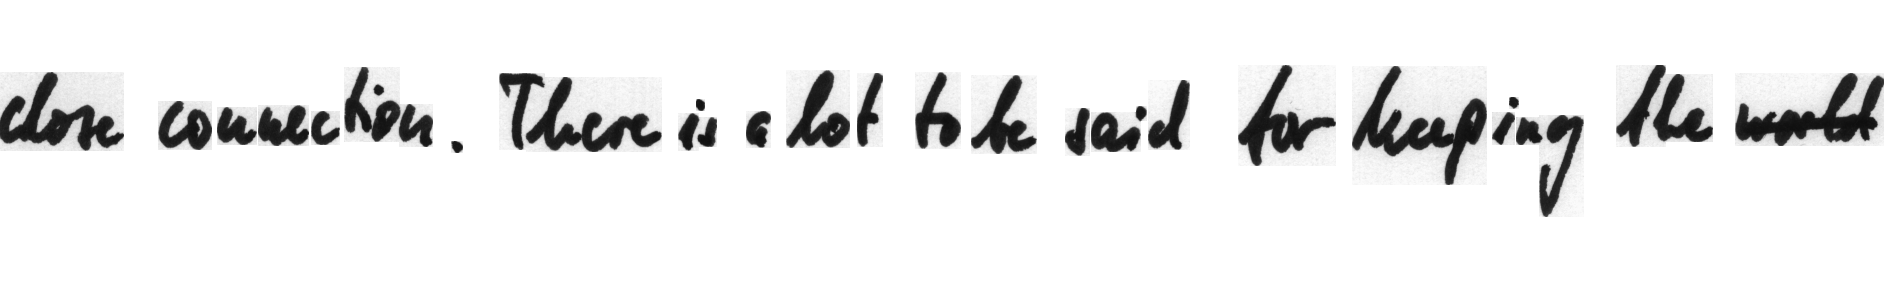 close connection. There is a lot to be said for keeping the